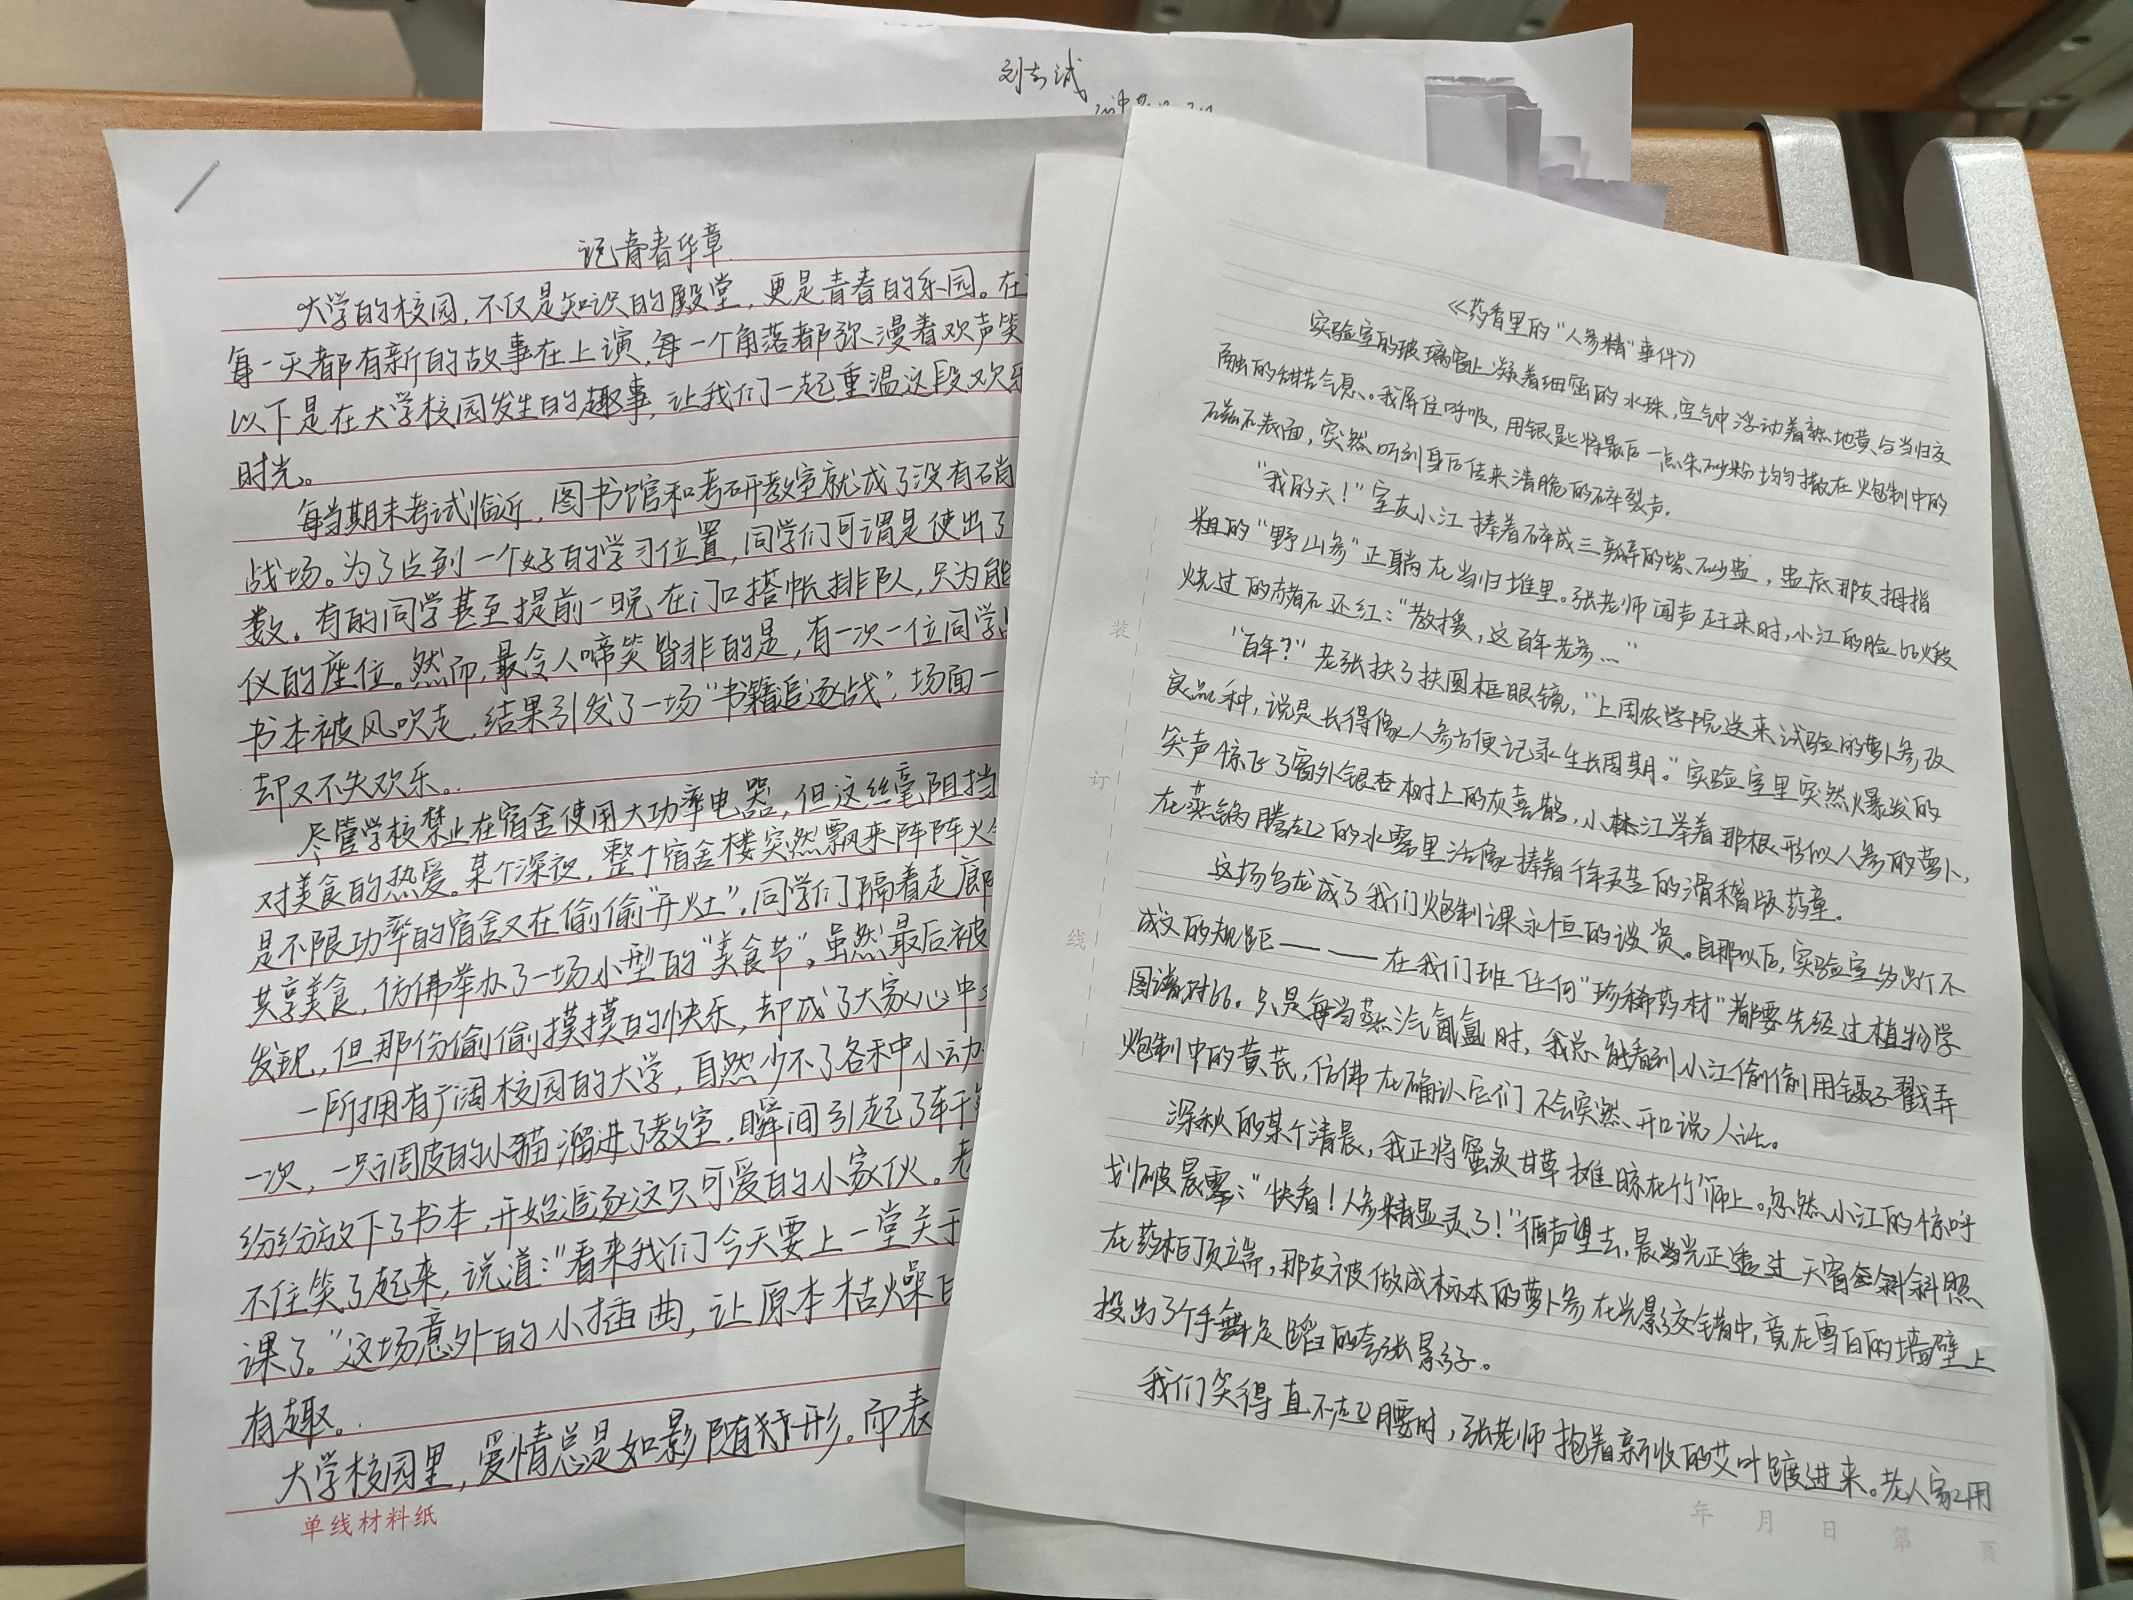 刘志诚
记青春华章
大学的校园，不仅是知识的殿堂，更是青春的乐园。在
每一天都有新的故事在上演，每一个角落都弥漫着欢声笑
以下是在大学校园发生的趣事，让我们一起重温这段欢乐
时光。
每当期末考试临近，图书馆和考研教室就成了没有硝
战场。为了占到一个好的学习位置，同学们可谓是使出了
数。有的同学甚至提前一晚在门口搭帐排队，只为能
仪的座位。然而，最令人啼笑皆非的是，有一次一位同学
书本被风吹走，结果引发了一场“书籍追逐战”，场面一
却又不失欢乐。
尽管学校禁止在宿舍使用大功率电器，但这丝毫阻挡
对美食的热爱。某个深夜，整个宿舍楼突然飘来阵阵火
是不限功率的宿舍又在偷偷“开灶”。同学们隔着走廊
共享美食，仿佛举办了一场小型的“美食节”。虽然最后被
发现，但那份偷偷摸摸的快乐，却成了大家心中
一所拥有广阔校园的大学，自然少不了各种小动
一次，一只调皮的小猫溜进了教室，瞬间引起了轩
纷纷放下了书本，开始追逐这只可爱的小家伙。老
不住笑了起来，说道：“看来我们今天要上一堂关于
课了。”这场意外的小插曲，让原本枯燥
有趣。
大学校园里，爱情总是如影随形。而表
单线材料纸
《药香里的“人参精”事件》
实验室的玻璃窗上凝着细密的水珠，空气中浮动着熟地黄与当归交
融的甜苦气息。我屏住呼吸，用银匙将最后一点朱砂粉均匀撒在炮制中的
磁石表面，突然听到身后传来清脆的碎裂声。
“我的天！”室友小江捧着碎成三瓣的紫砂盅，盅底那支拇指
粗的“野山参”正躺在当归堆里。张老师闻声赶来时，小江的脸比火煅
烧过的赭石还红：“教授，这百年老参...”
“百年？”老张扶了扶圆框眼镜，“上周农学院送来试验的萝卜参改
良品种，说是长得像人参方便记录生长周期。”实验室里突然爆发的
笑声惊飞了窗外银杏树上的灰喜鹊，小江举着那根形似人参的萝卜，
在蒸锅腾起的水雾里活像捧着千年灵芝的滑稽版药童。
这场乌龙成了我们炮制课永恒的谈资。自那以后，实验室多出个不
成文的规矩———在我们班任何“珍稀药材”都要先经过植物学
图谱对比。只是每当蒸汽氤氲时，我总能看到小江偷偷用镊子戳弄
炮制中的黄芪，仿佛在确认它们不会突然开口说人话。
深秋的某个清晨，我正将蜜炙甘草摊晾在竹筛上。忽然小江的惊呼
划破晨雾：“快看！人参精显灵了！”循声望去，晨光正透过天窗斜斜照
在药柜顶端，那支被做成标本的萝卜参在光影交错中，竟在雪白的墙壁上
投出了个手舞足蹈的夸张影子。
我们笑得直不起腰时，张老师抱着新收的艾叶踱进来。老人家用
装
订
线
年 月 日 第 页